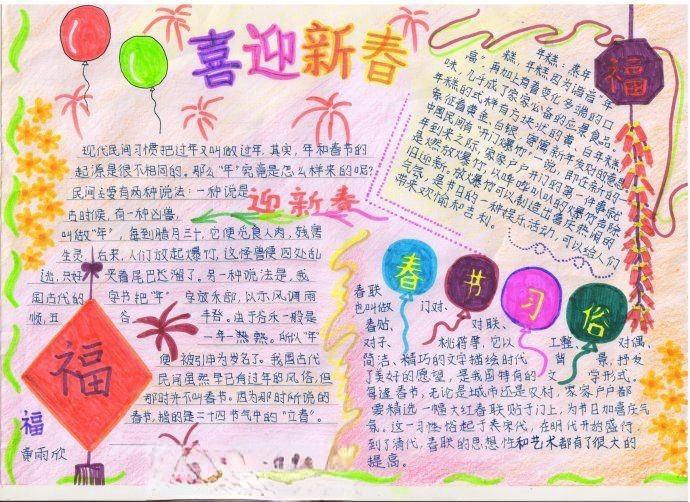 喜迎新春
现代民间习惯把过年又叫做过年,其实,年和春节的
起源是很不相同的。那么"年"究竟是怎么样来的呢?
民间主要有两种说法:一种说是
古时候,有一种凶兽,
叫做"年",每到腊月三十,它便觅食人肉,残害
生灵。后来,人们放起爆竹,这怪兽便四处乱
逃,只好 夹着尾巴逃溜了。另一种说法是,我
国古代的 字书把"年" 字放禾部,以示风调雨
顺,五 谷 丰登。由于谷禾一般是
一年一熟。所以"年"
便 被引申为岁名了。我国古代
民间虽然早已有过年的风俗,但
那时并不叫春节。因为那时所说的
春节,指的是二十四节气中的"立春"。
迎新春
福
福
黄雨欣
年糕:蒸年
糕,年糕因为谐音"年
高",再加上有着变化多端的口
味,几乎成了家家必备的应景食品。
年糕的式样有方块状的黄、白年糕,
象征着黄金、白银,寄寓新年发财的意思
中国民间有"开门爆竹"一说。即在新的一
年到来之际,家家户户开门的第一件事就
是燃放爆竹,以哔哔叭叭的爆竹声除
旧迎新。放爆竹可以制造出喜庆热闹的
气氛,是节日的一种娱乐活动,可以给人们
带来欢愉和吉利。
福
春节习俗
春联
也叫做 门对、
春贴、 对联、
对子、 桃符等,它以 工整、 对偶、
简洁、精巧的文字描绘时代 背 景,抒发
了美好的愿望,是我国特有的 文 学形式。
每逢春节,无论是城市还是农村,家家户户都
要精选一幅大红春联贴于门上,为节日加喜庆气
氛。这一习俗起于 宋代,在明代开始盛行,
到了清代,春联的思想性和艺术都有了很大的
提高。